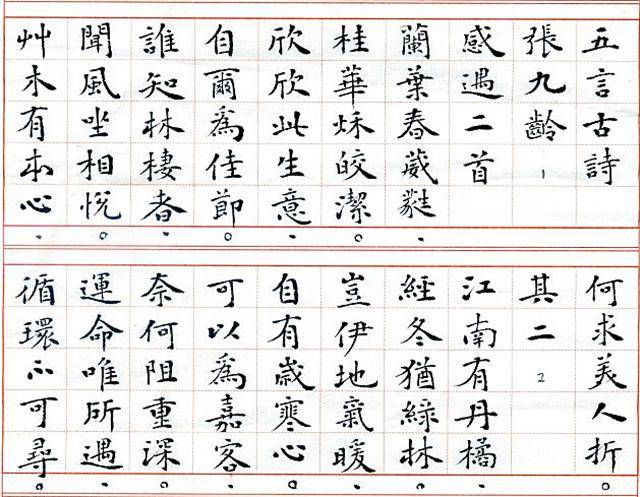 五言古詩
張九齡 1
感遇二首
蘭葉春葳蕤
桂華秌皎潔
欣欣此生意
自爾為佳節
誰知林棲者
聞風坐相悅
艸木有本心
何求美人折
其二 2
江南有丹橘
經冬猶綠林
豈伊地氣暖
自有歲寒心
可以為嘉客
奈何阻重深
運命唯所遇
循環不可尋